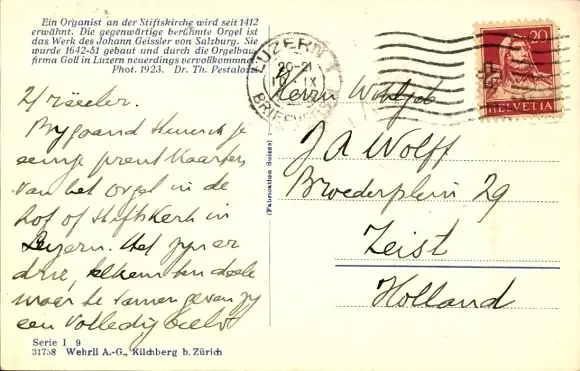 Ein Organist an der Stiftskirche wird seit 1412
erwähnt. Die gegenwärtige berühmte Orgel ist
das Werk des Johann Geissler von Salzburg. Sie
wurde 1642-51 gebaut und durch die Orgelbau-
firma Goll in Luzern neuerdings vervollkommnet.
Phot. 1923. Dr. Th. Pestalozzi
Bijgaand stuur ik je
eenige prentkaarten
van het orgel in de
hof of stiftskerk in
Luzern. Het zijn er
drie, elk een deel
waar te samen gevan zij
een volledig beeld
Serie I 9
31758 Wehrli A.-G., Kilchberg b. Zürich
(Fabrication Suisse)
LUZERN 1
20-21
IX
20
HELVETIA
Herrn
J A Wolff
Broederplein 29
Zeist
Holland